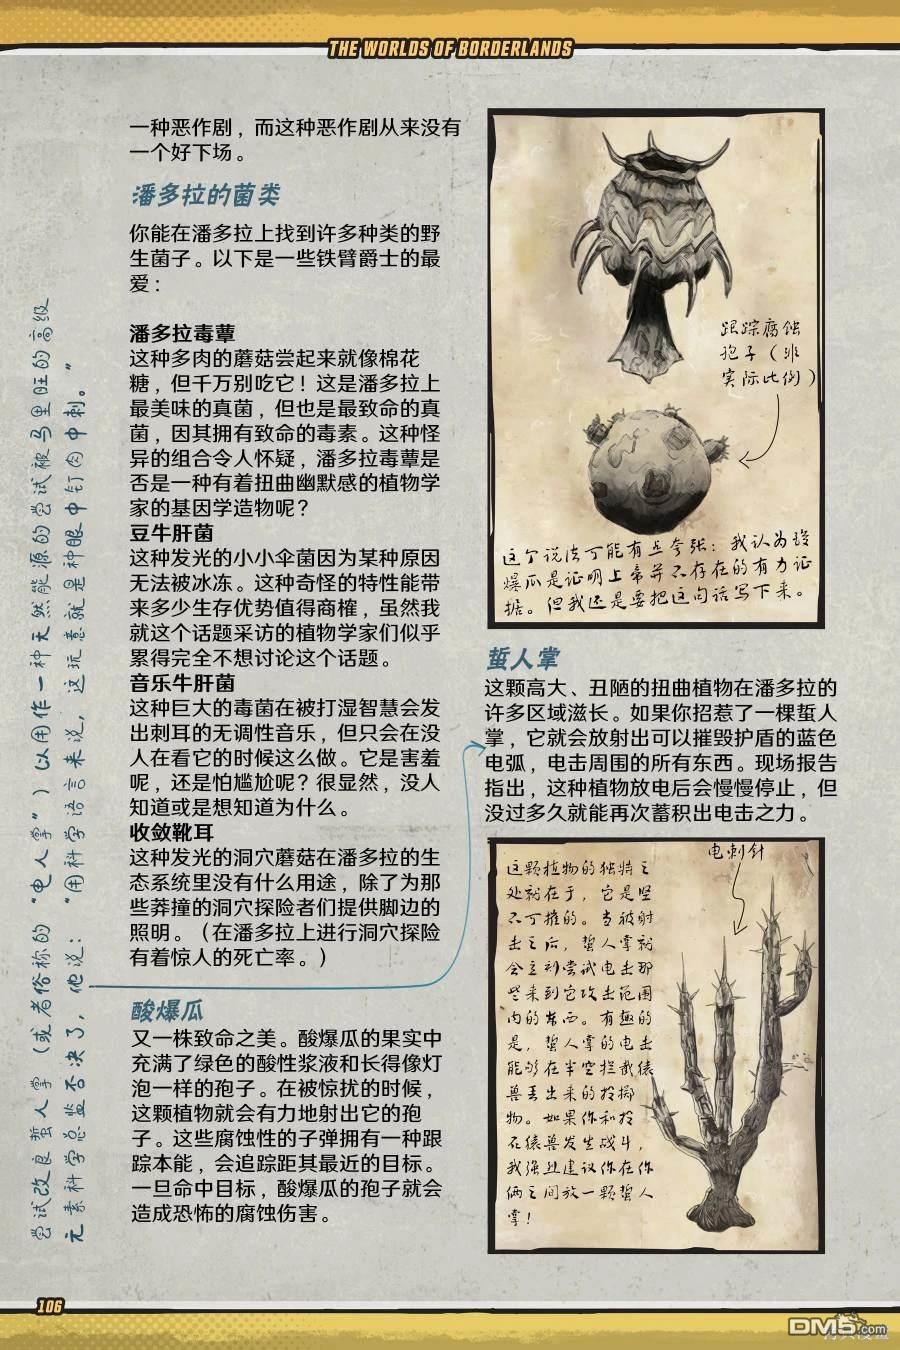 THE WORLDS OF BORDERLANDS
一种恶作剧，而这种恶作剧从来没有
一个好下场。
潘多拉的菌类
你能在潘多拉上找到许多种类的野
生菌子。以下是一些铁臂爵士的最
爱：
潘多拉毒蕈
这种多肉的蘑菇尝起来就像棉花
糖，但千万别吃它！这是潘多拉上
最美味的真菌，但也是最致命的真
菌，因其拥有致命的毒素。这种怪
异的组合令人怀疑，潘多拉毒蕈是
否是一种有着扭曲幽默感的植物学
家的基因学造物呢？
豆牛肝菌
这种发光的小小伞菌因为某种原因
无法被冰冻。这种奇怪的特性能带
来多少生存优势值得商榷，虽然我
就这个话题采访的植物学家们似乎
累得完全不想讨论这个话题。
音乐牛肝菌
这种巨大的毒菌在被打湿智慧会发
出刺耳的无调性音乐，但只会在没
人在看它的时候这么做。它是害羞
呢，还是怕尴尬呢？很显然，没人
知道或是想知道为什么。
收敛靴耳
这种发光的洞穴蘑菇在潘多拉的生
态系统里没有什么用途，除了为那
些莽撞的洞穴探险者们提供脚边的
照明。（在潘多拉上进行洞穴探险
有着惊人的死亡率。）
酸爆瓜
又一株致命之美。酸爆瓜的果实中
充满了绿色的酸性浆液和长得像灯
泡一样的孢子。在被惊扰的时候，
这颗植物就会有力地射出它的孢
子。这些腐蚀性的子弹拥有一种跟
踪本能，会追踪距其最近的目标。
一旦命中目标，酸爆瓜的孢子就会
造成恐怖的腐蚀伤害。
跟踪腐蚀
孢子（非
实际比例）
这个说法可能有点夸张：我认为酸
爆瓜是证明上帝并不存在的有力证
据。但我还是要把这句话写下来。
蜇人掌
这颗高大、丑陋的扭曲植物在潘多拉的
许多区域滋长。如果你招惹了一棵蜇人
掌，它就会放射出可以摧毁护盾的蓝色
电弧，电击周围的所有东西。现场报告
指出，这种植物放电后会慢慢停止，但
没过多久就能再次蓄积出电击之力。
电刺针
这颗植物的独特之
处就在于，它是坚
不可摧的。当被射
击之后，蜇人掌就
会立刻尝试电击那
些来到它攻击范围
内的东西。有趣的
是，蜇人掌的电击
能够在半空拦截猿
兽丢出来的投掷
物。如果你和投
石猿兽发生战斗，
我强烈建议你在你
俩之间放一颗蜇人
掌！
尝试改良蜇人掌（或者俗称的“电人掌”）以用作一种天然能源的尝试被马里旺的高级
元素科学总监否决了，他说：“用科学语言来说，这玩意就是种眼中钉肉中刺。”
106
DM5.com